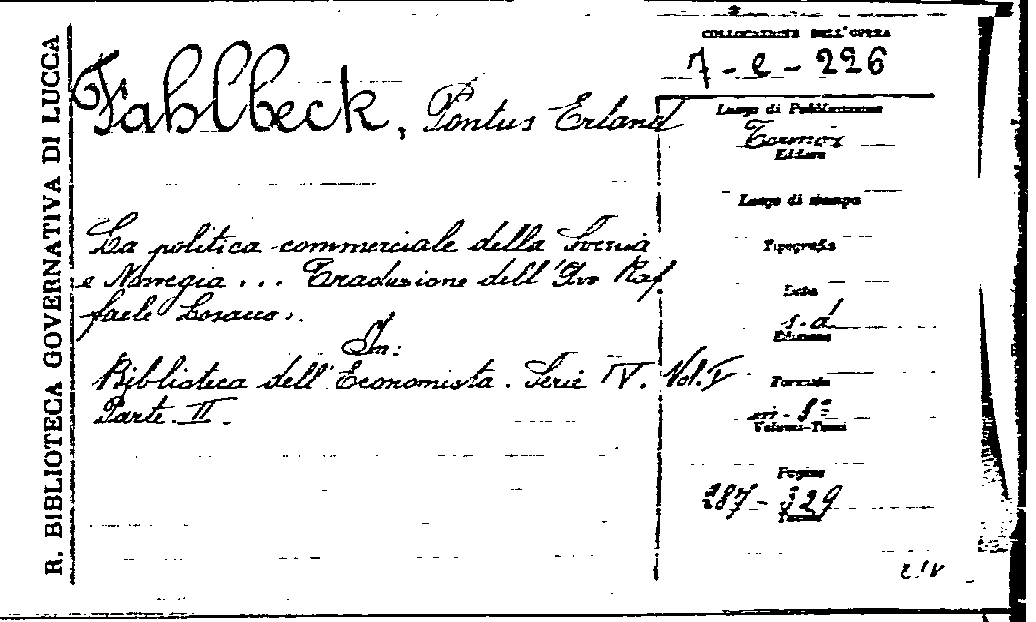 R. BIBLIOTECA GOVERNATIVA DI LUCCA
COLLOCAZIONE DELL'OPERA
7-e-226
Fahlbeck, Pontus Erland
La politica commerciale della Svezia
e Norvegia... Traduzione dell'Avv Raf
faele Losacco..
In:
Biblioteca dell'Economista. Serie IV. Vol. V
Parte II.
Luogo di Pubblicazione
Torino
Editore
Luogo di stampa
Tipografia
Data
s.d.
Edizione
Formato
in-8°
Volumi-Tomi
Pagine
287-329
Tavole